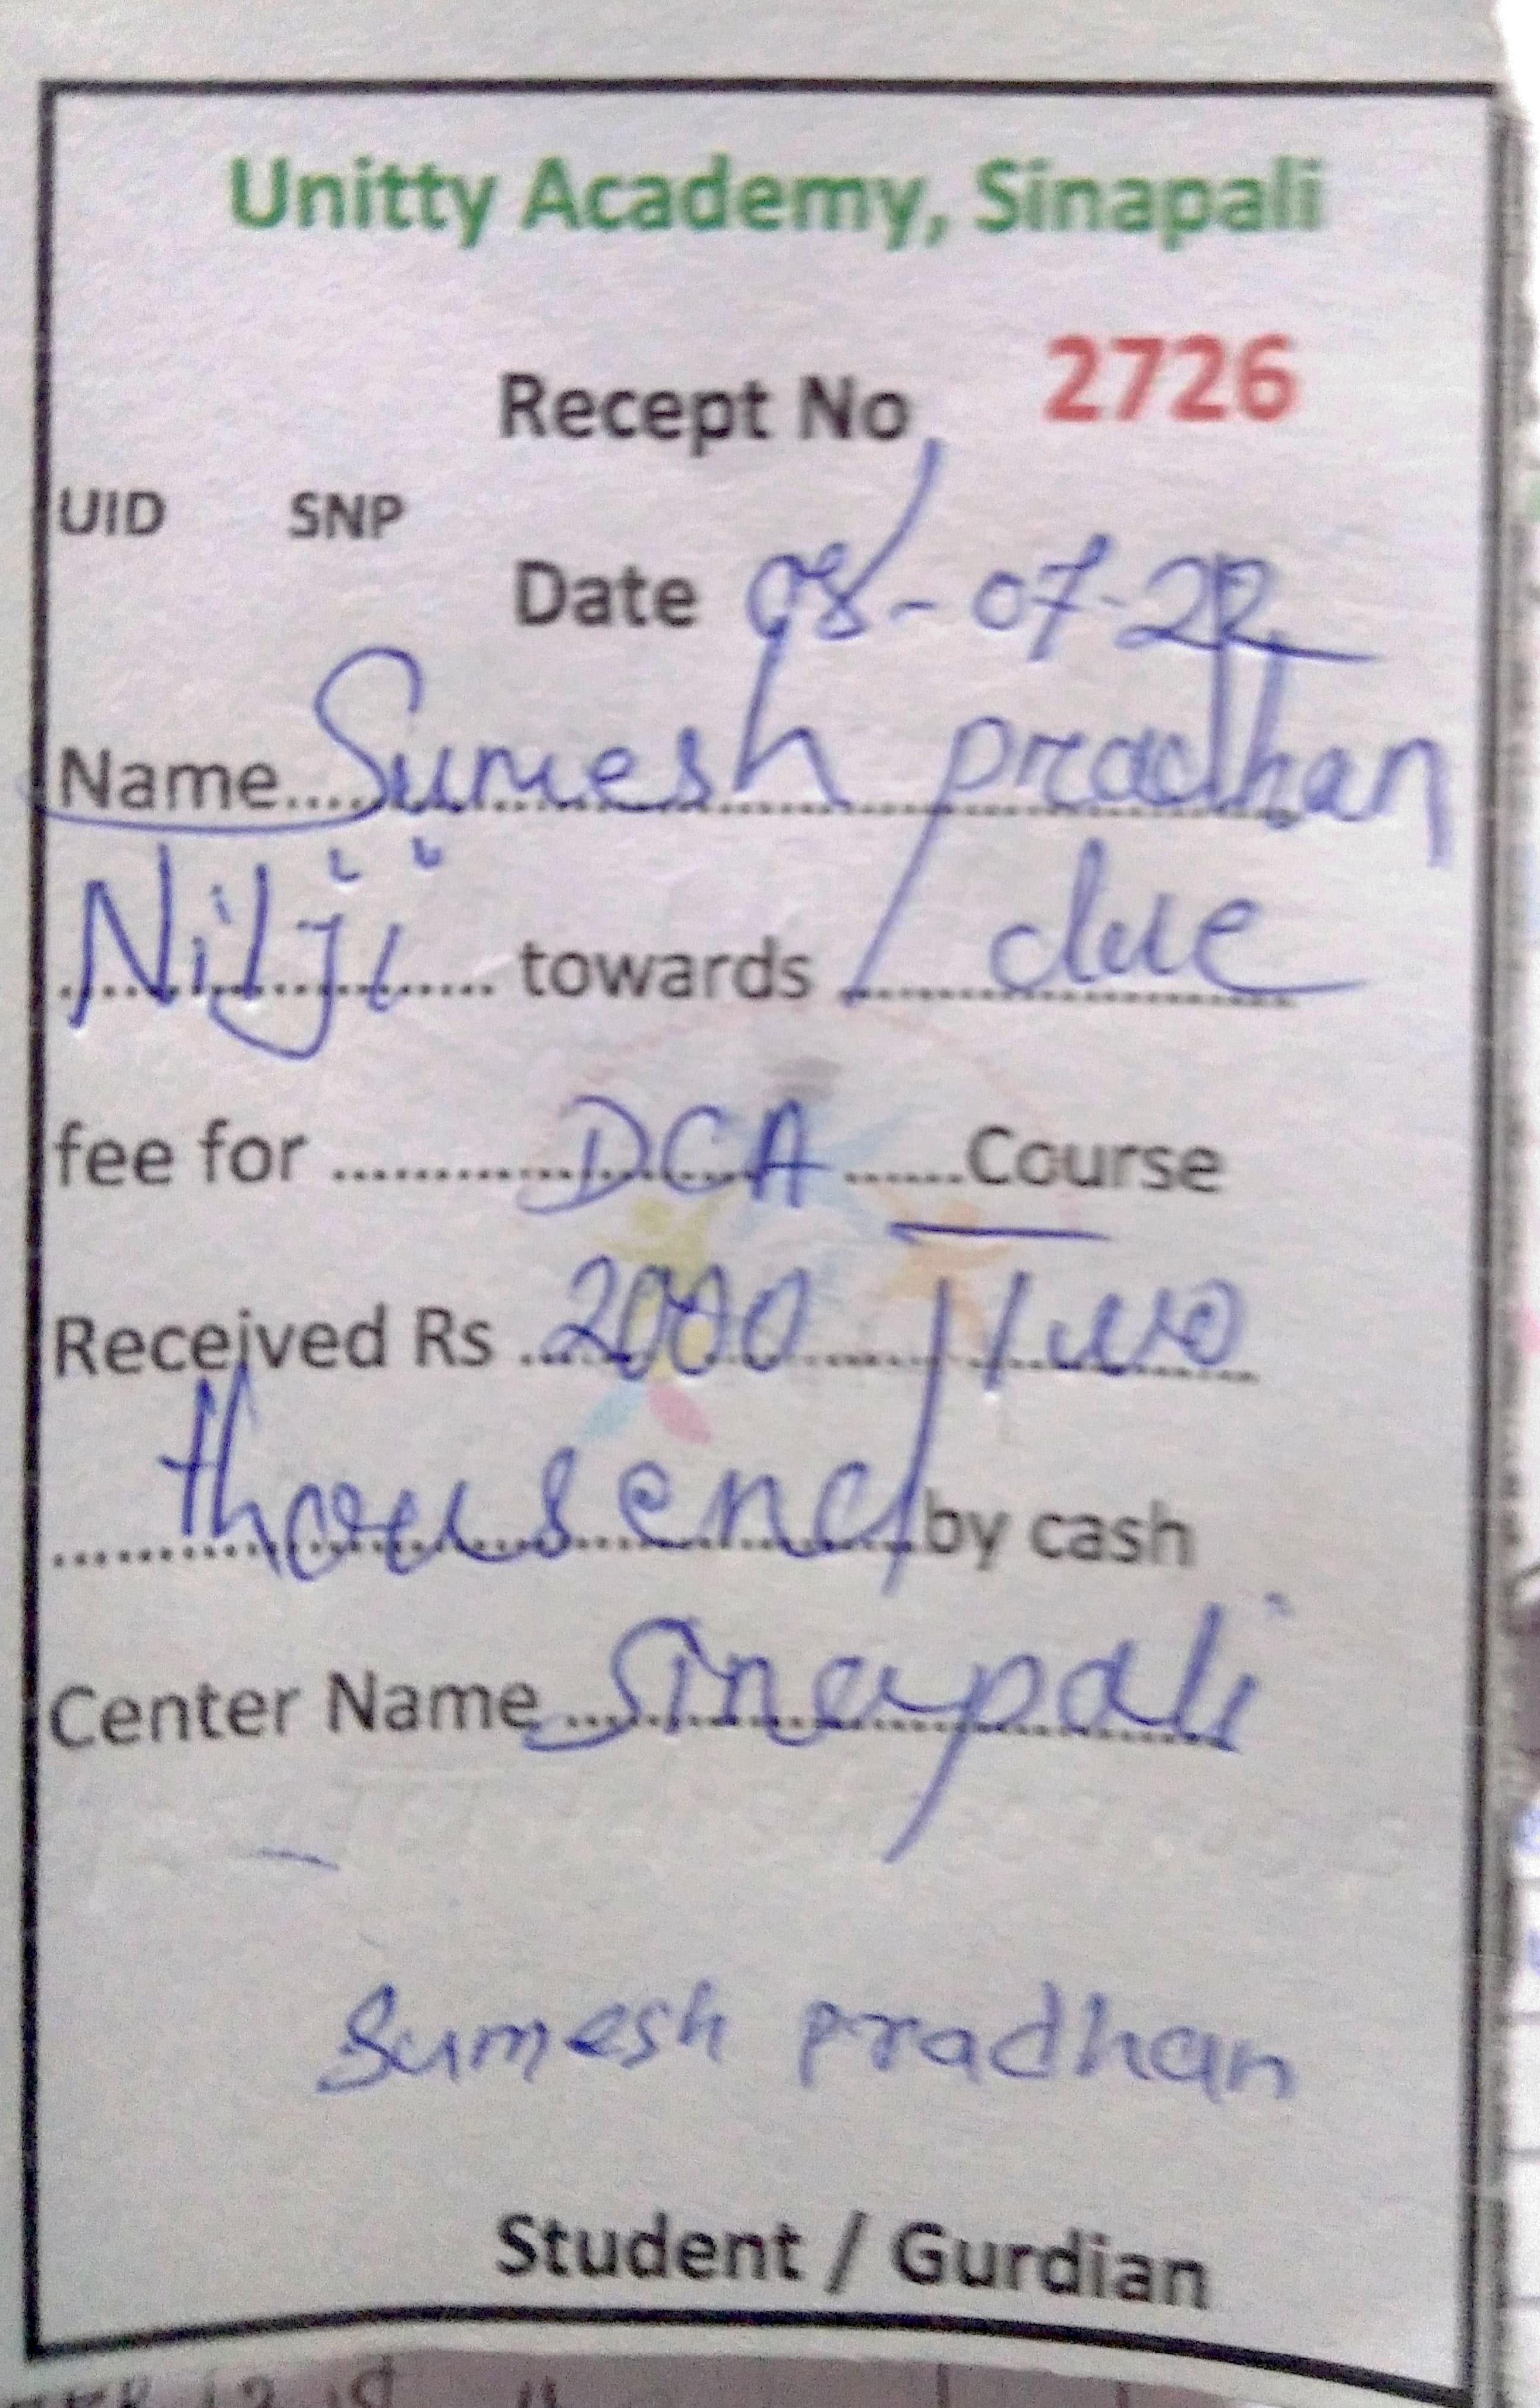 Unitty Academy, Sinapali
Recept No 2726
UID SNP
Date 08-07-22
Name Sumesh pradhan
Nilji towards due
fee for DCA Course
Received Rs 2000 Two
thousend by cash
Center Name Sinapali
Sumesh pradhan
Student / Gurdian